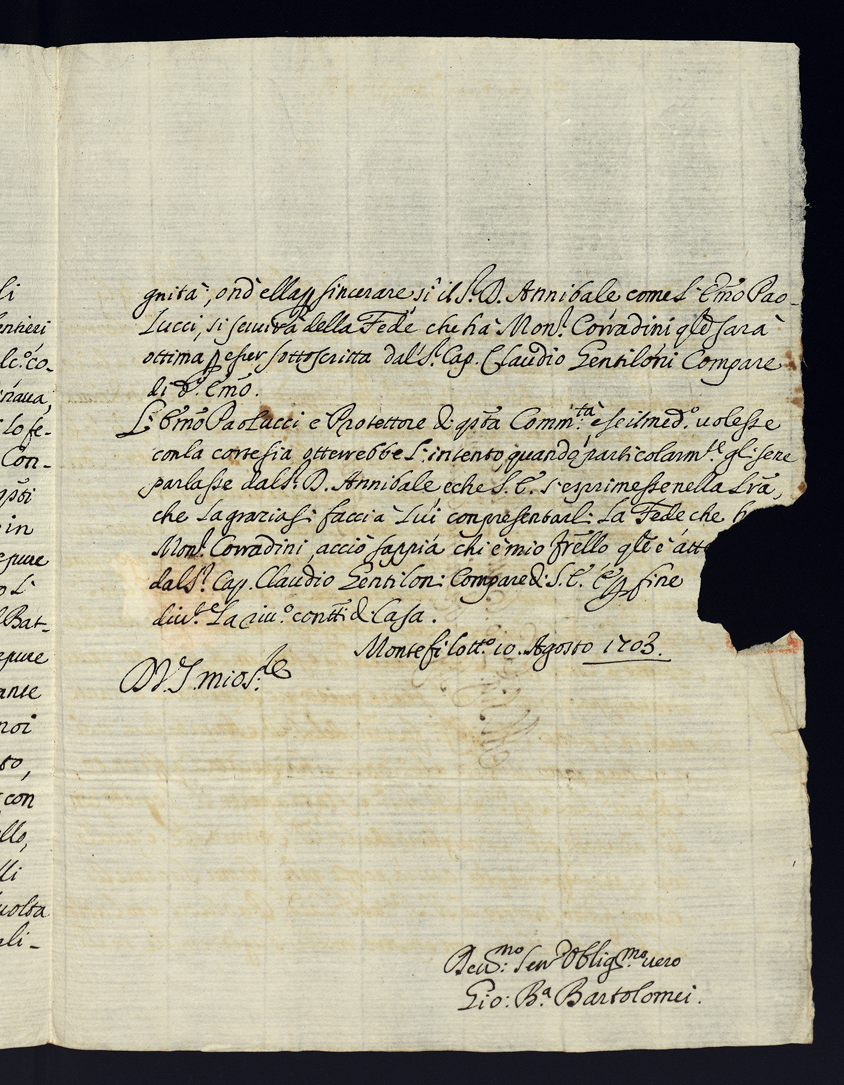 li
entieri
lc.º co-
enava,
i lo fe-
Con-
qsti
in
epure
o l'
Bat-
epure
ante
noi
to,
con
llo,
lli
uolta
ali-
gnità, ond'ella p sincerare sì il S.r D. Annibale come l'Emo Pao-
lucci, si servirà della Fede che hà Mon.r Corradini qle sarà
ottima p esser sottoscritta dal S.r Cap. Claudio Gentiloni Compare
di d.º Emo.
L'Emo Paolucci e Protettore di qsta Comm.tà e se il med.º volesse
con la cortesia otterrebbe l'intento, quando particolarm.te gli sene
parlasse dal S.r D. Annibale e che S. E. s'esprimesse nella lra,
che la grazia si faccia à lui con presentarli la Fede che h
Mon.r Corradini, acciò sappia chi è mio frello qle è atte
dal S.r Cap. Claudio Gentiloni Compare di S. E. E p fine
div.te la riv.º con tti di Casa.
Montefilott.º 10. Agosto 1703.
D V. S. mio S.re
Dev.mo Serv Oblig.mo vero
Gio: B.a Bartolomei.